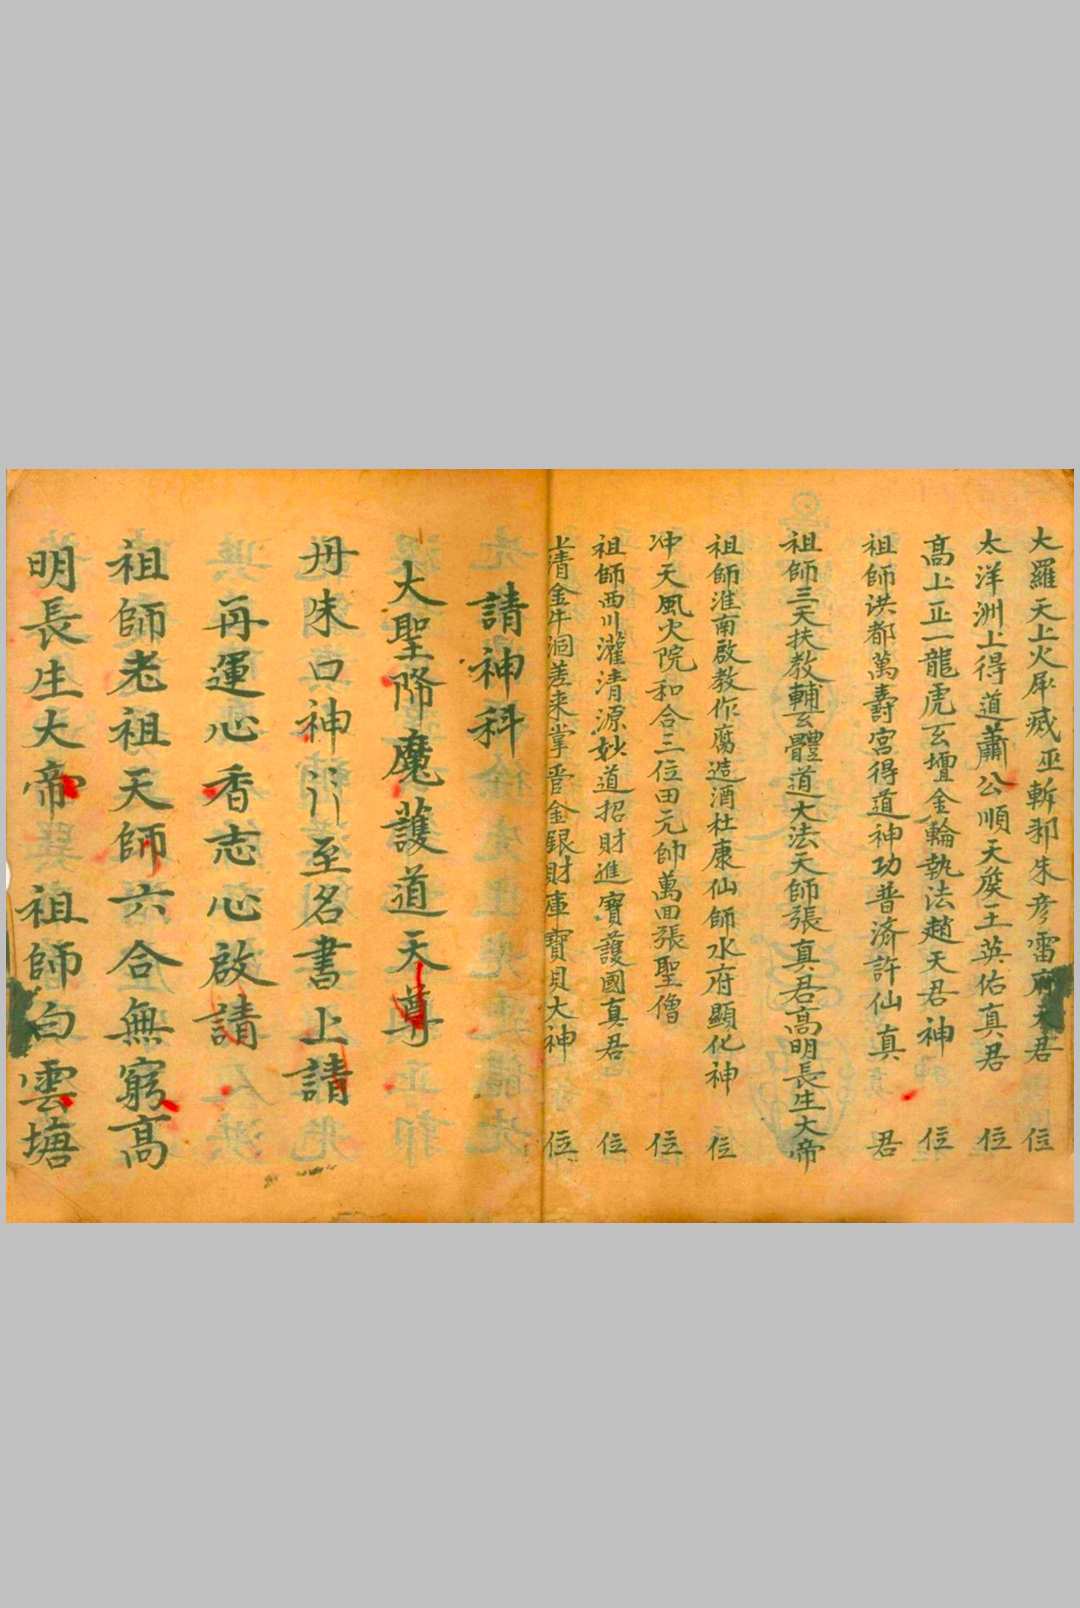 大羅天上火犀滅巫斬邪朱彥雷府天君 位
太洋洲上得道蕭公順天矦王英佑真君 位
高上正一龍虎玄壇金輪執法趙天君神 位
祖師洪都萬壽宮得道神功普済許仙真 君
祖師三天扶教輔玄體道大法天師張真君高明長生大帝
祖師淮南啟教作腐造酒杜康仙師水府顯化神 位
冲天風火院和合三位田元帥萬回張聖僧 位
祖師西川灌清源妙道招財進寳護國真君 位
上清金牛洞差来掌管金銀財庫寶貝大神 位
請神科
大聖降魔護道天尊
丹朱口神 至名書上請
再運心香志心啟請
祖師老祖天師六合無窮高
明長生大帝 祖師白雲塘